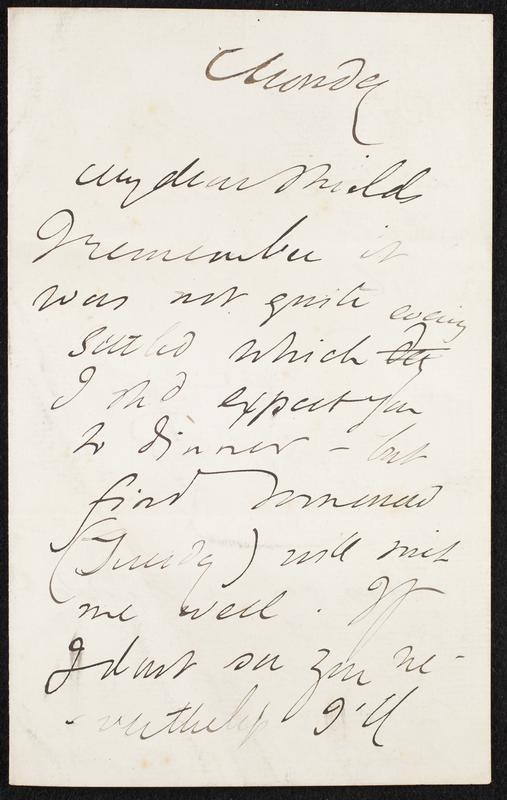 Monday
My dear Shields
I remember it
was not quite
evening
settled which
I shd expect you
to dinner – but
find tomorrow
(Tuesday) will suit
me well. If
I don't see you ne-
-vertheless I'll